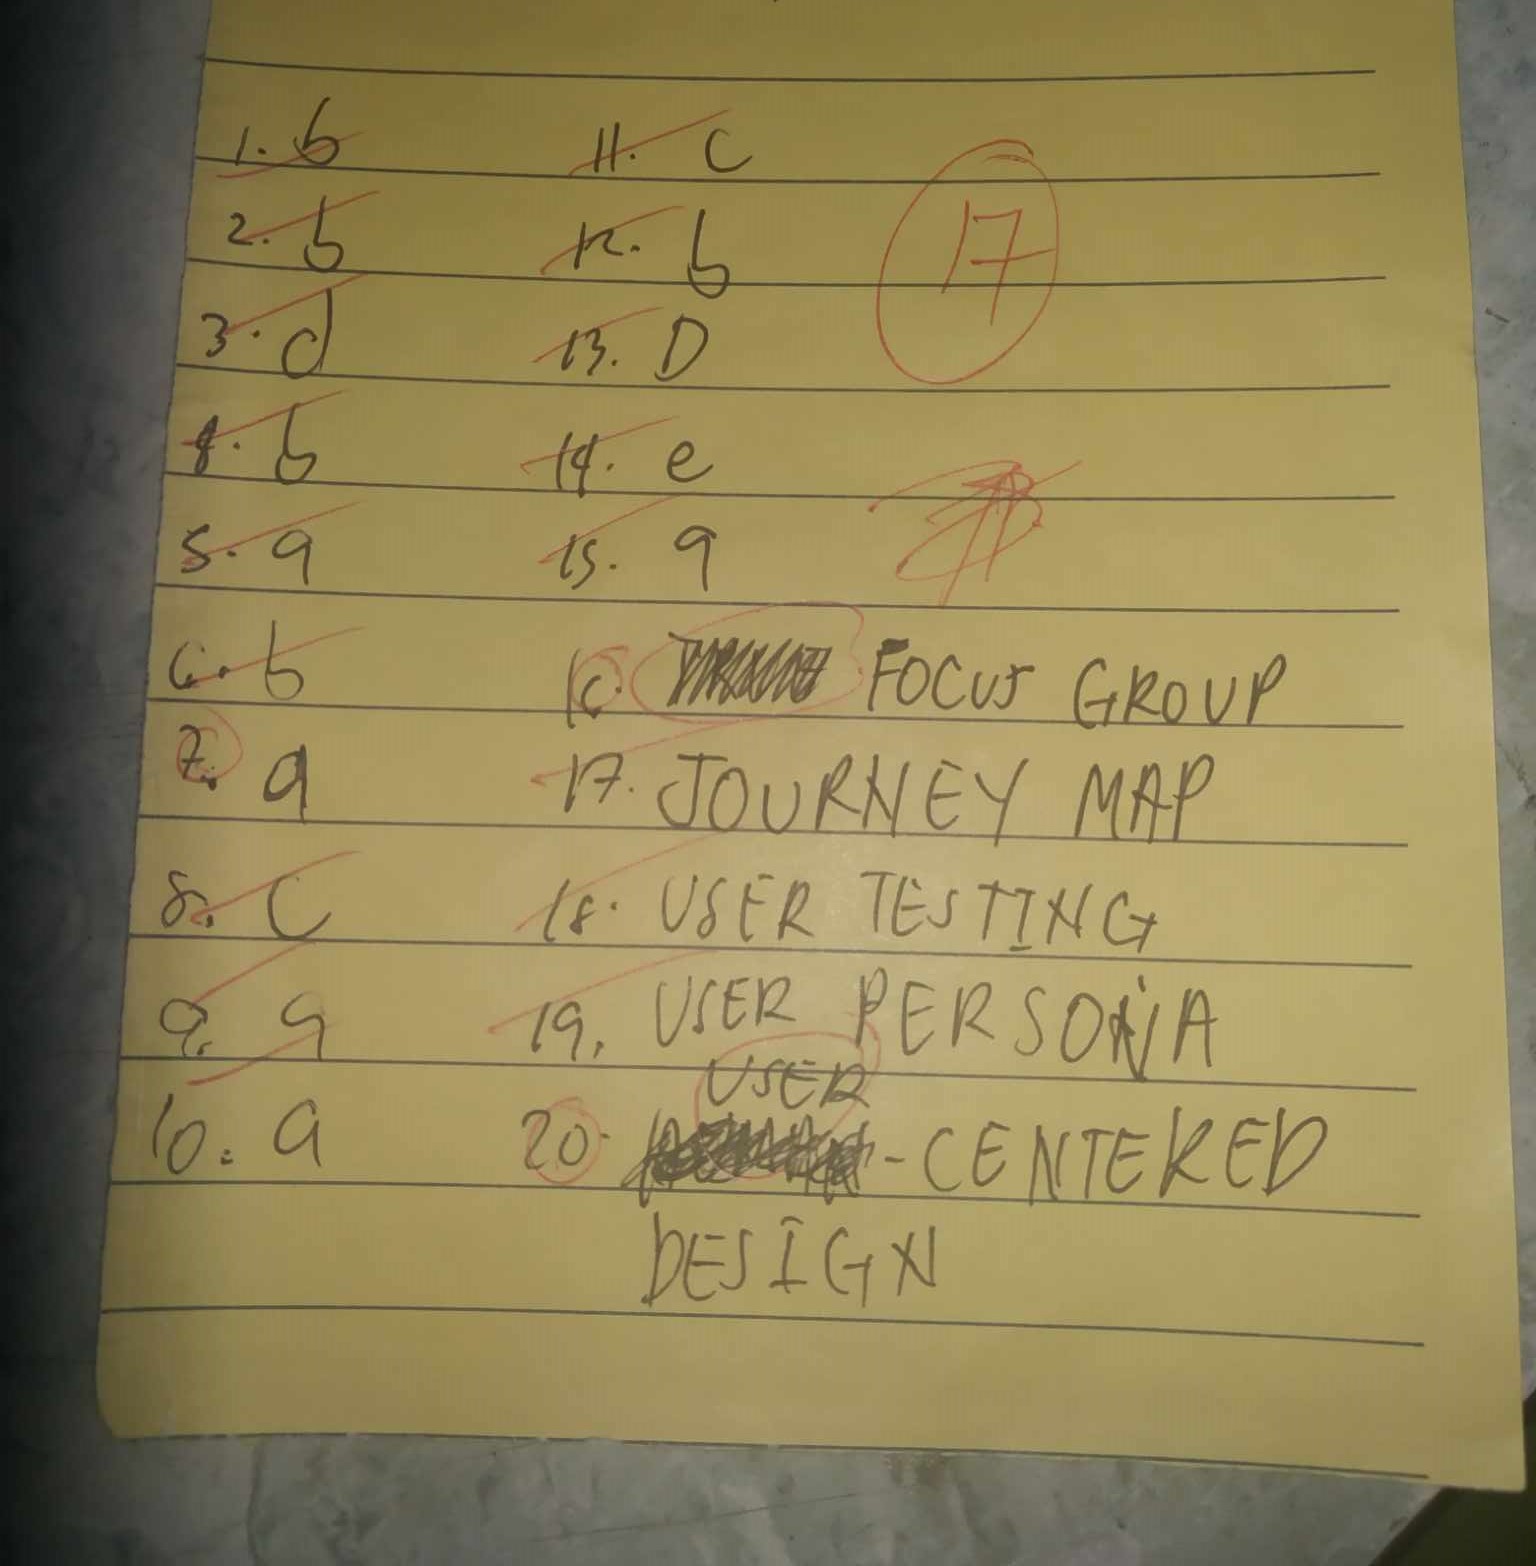 1. b
2. b
3. d
4. b
5. a
6. b
7. a
8. C
9. a
10. a
11. C
12. b
13. D
14. e
15. a
16. FOCUS GROUP
17. JOURNEY MAP
18. USER TESTING
19. USER PERSONA
20. USER-CENTERED
DESIGN
17